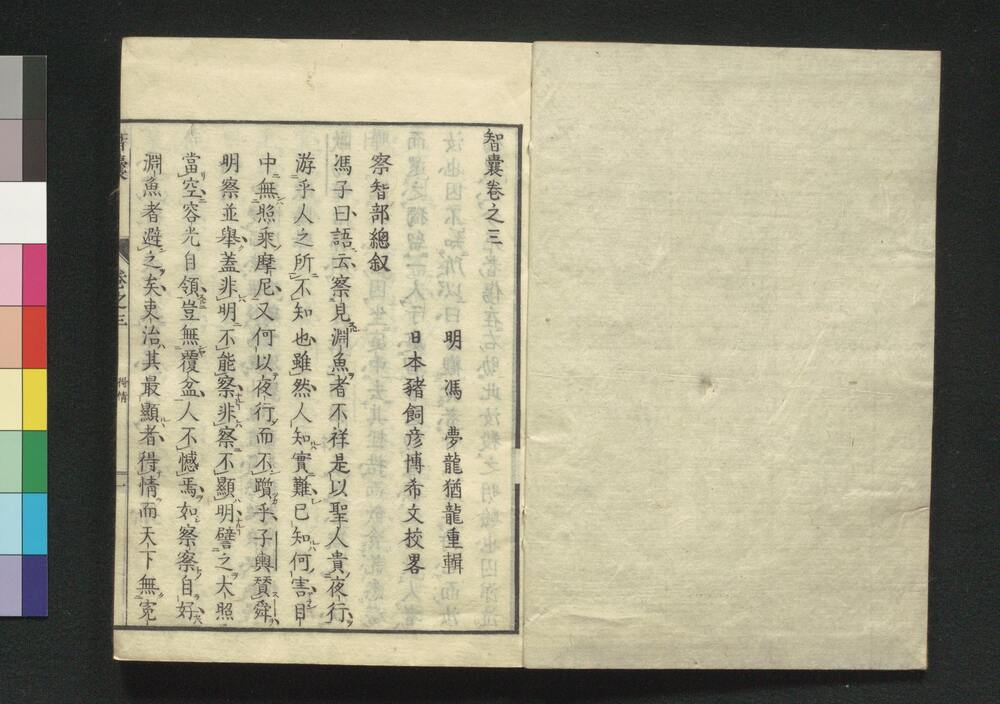 智囊卷之三
明 馮 夢龍猶龍重輯
日本豬飼彥博希文挍畧
察智部總叙
馮子曰語云察見淵魚者不祥是以聖人貴夜行
游乎人之所不知也雖然人知實難已知何害目
中無照乘摩尼又何以夜行而不躓乎子輿賛舜
明察並舉蓋非明不能察非察不顯明譬之大照
當空容光自領豈無覆盆人不憾焉如察察自好
淵魚者避之矣吏治其最顯者得情而天下無冤
卷之三
得情
一